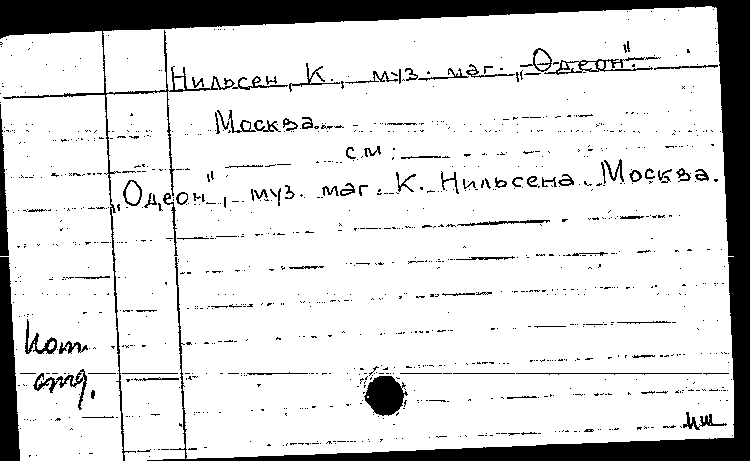 Нильсен, К., муз. маг. „Одеон".
Москва.
см.
„Одеон", муз. маг. К. Нильсена. Москва.